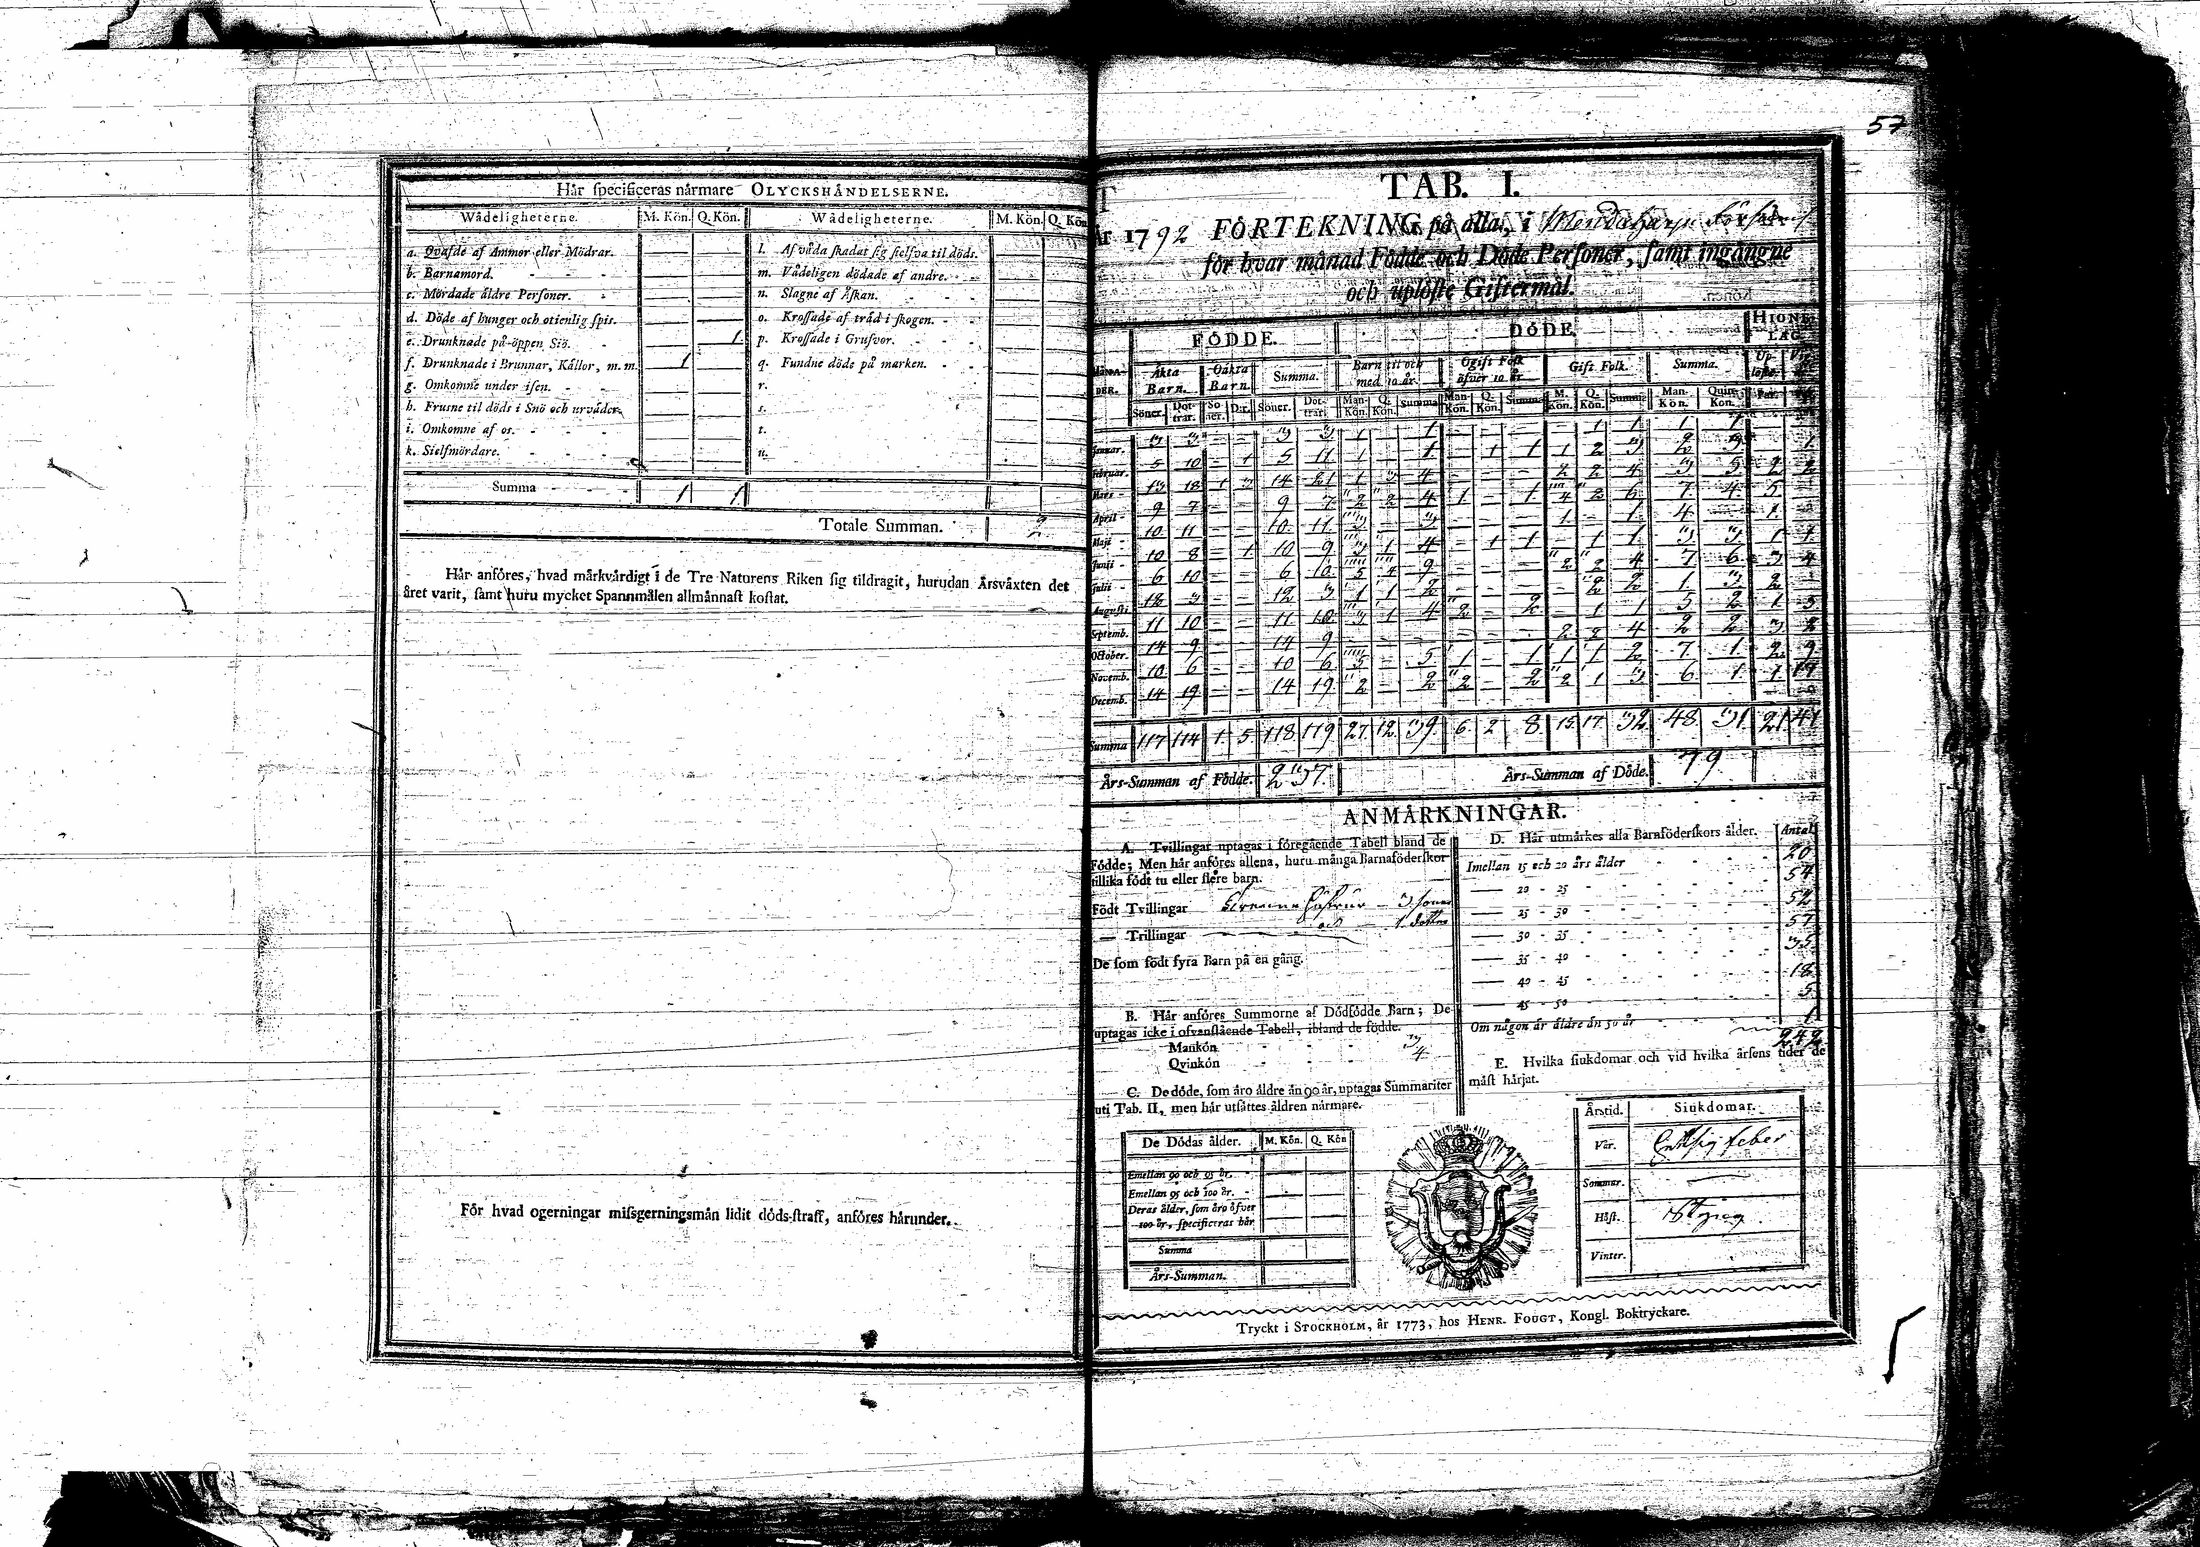 Här specificeras närmare OLYCKSHÄNDELSERNE.
Wådeligheterne. M. Kön. Q. Kön. Wådeligheterne. M. Kön. Q. Kön
a. Qvafde af Ammor eller Mödrar.
b. Barnamord.
c. Mördade äldre Personer.
d. Döde af hunger och otienlig spis.
e. Drunknade på öppen Siö. 1.
f. Drunknade i Brunnar, Källor, m. m. 1
g. Omkomne under isen.
h. Frusne til döds i Snö och urväder.
i. Omkomne af os.
k. Sielfmördare.
l. Af våda skadat sig sielfva til döds.
m. Vådeligen dödade af andre.
n. Slagne af Åskan.
o. Krossade af träd i skogen.
p. Krossade i Grufvor.
q. Fundne döde på marken.
r.
s.
t.
u.
Summa 1 1.
Totale Summan. 2
Här anföres, hvad märkvärdigt i de Tre Naturens Riken sig tildragit, hurudan Årsväxten det
året varit, samt huru mycket Spannmålen allmännast kostat.
För hvad ogerningar missgerningsmän lidit döds-straff, anföres härunder.
57
TAB. I.
År 1792 FÖRTEKNING på alla, i
för hvar månad Födde och Döde Personer, samt ingångne
och uplöste Giftermål.
FÖDDE. DÖDE. HIONELAG.
MÅNADER. Äkta Barn. Oäkta Barn. Summa. Barn til och med 10 år. Ogift Folk öfver 10 år. Gift Folk. Summa.
Januar. 3 3 - - 3 3 1 1 - - - 1 1 1 1
Februar. 5 10 - 1 5 11 1 - 1 - 1 1 1 2 3 2 3 1
Mars 13 18 1 3 14 21 1 3 4 - - - 2 2 4 3 5 2 2
April 9 7 - - 9 7 2 2 4 1 - 1 4 2 6 7 4 5
Maji 10 11 - - 10 11 3 - 3 - - - 1 - 1 4 - 1
Junii 10 8 - 1 10 9 3 1 4 - 1 1 - 1 1 3 3 1 1
Julii 6 10 - - 6 10 5 4 9 - - - 2 2 4 7 6 3 4
Augusti 12 3 - - 12 3 1 1 2 - - - - 2 2 1 3 2
Septemb. 11 10 - - 11 10 3 1 4 2 - 2 - 1 1 5 2 1 3
October. 14 9 - - 14 9 - - - - - - 2 2 4 2 2 3 2
Novemb. 10 6 - - 10 6 5 - 5 1 - 1 1 1 2 7 1 2 9
Decemb. 14 19 - - 14 19 2 - 2 2 - 2 2 1 3 6 1 1 17
Summa 117 114 1 5 118 119 27 12 39 6 2 8 15 17 32 48 31 21 41
Års-Summan af Födde. 237. Års-Summan af Döde. 79
ANMÄRKNINGAR.
A. Tvillingar uptagas i föregående Tabell bland de
Födde; Men här anföres allena, huru många Barnaföderskor
tillika födt tu eller flere barn.
Födt Tvillingar
— Trillingar
De som födt fyra Barn på en gång.
B. Här anföres Summorne af Dödfödde Barn; De
uptagas icke i ofvanstående Tabell, ibland de födde.
Mankön 3
Qvinkön 4
C. De döde, som äro äldre än 90 år, uptagas Summariter
uti Tab. II, men här utsättes åldren närmare.
De Dödas ålder. M. Kön. Q. Kön
Emellan 90 och 95 år.
Emellan 95 och 100 år.
Deras ålder, som äro öfver
100 år, specificeras här
Summa
Års-Summan.
D. Här utmärkes alla Barnföderskors ålder. Antal
Imellan 15 och 20 års ålder 20
20 - 25 54
25 - 30 52
30 - 35 57
35 - 40 35
40 - 45 18
45 - 50 5
Om någon är äldre än 50 år 1
242
E. Hvilka siukdomar och vid hvilka årsens tider de
mäst härjat.
Årstid. Siukdomar.
Vår. feber
Sommar.
Höst.
Vinter.
Tryckt i STOCKHOLM, år 1773, hos HENR. FOUGT, Kongl. Boktryckare.